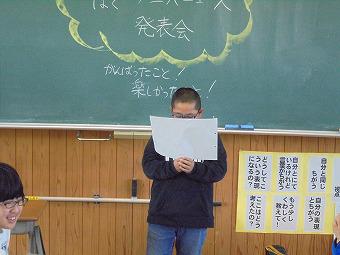 発表会
がんばったこと!
楽しかったこと!
視点
自分と同じ
ちがう
自分とにて
いるけれど
言葉がちがう
どうしてこ
ういう表現
になるの?
自分の表現
とちがう
もう少し
くわしく
教えて!
ここはどう
考えたの?